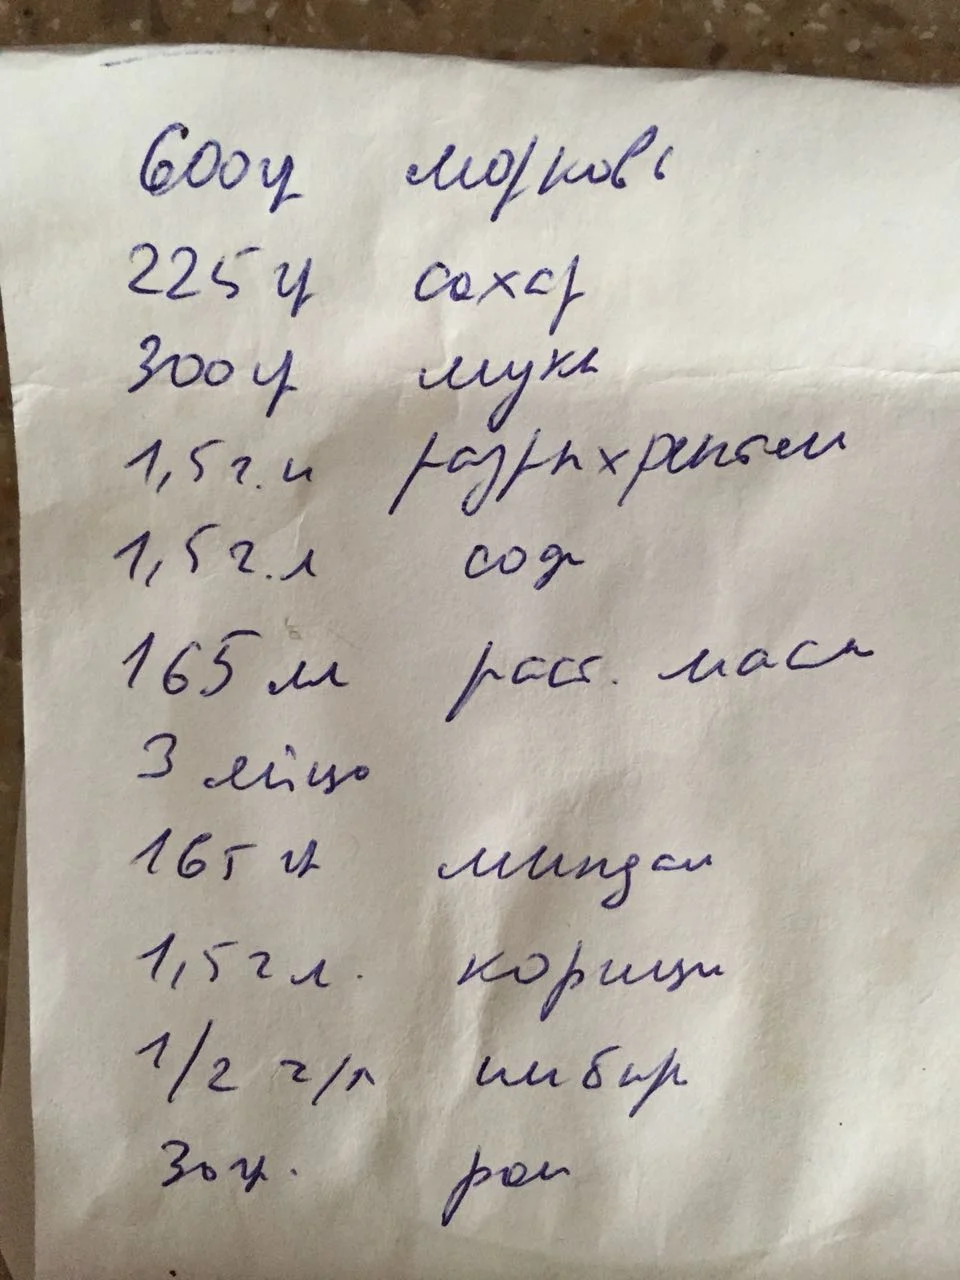 600гр морковь
225 гр сахар
300гр мука
1,5 ч.л разрыхлител
1,5 ч.л сода
165 мл раст. масла
3 яйцо
165 гр миндал
1,5 ч л. корицы
1/2 ч/л имбир
30гр. ром